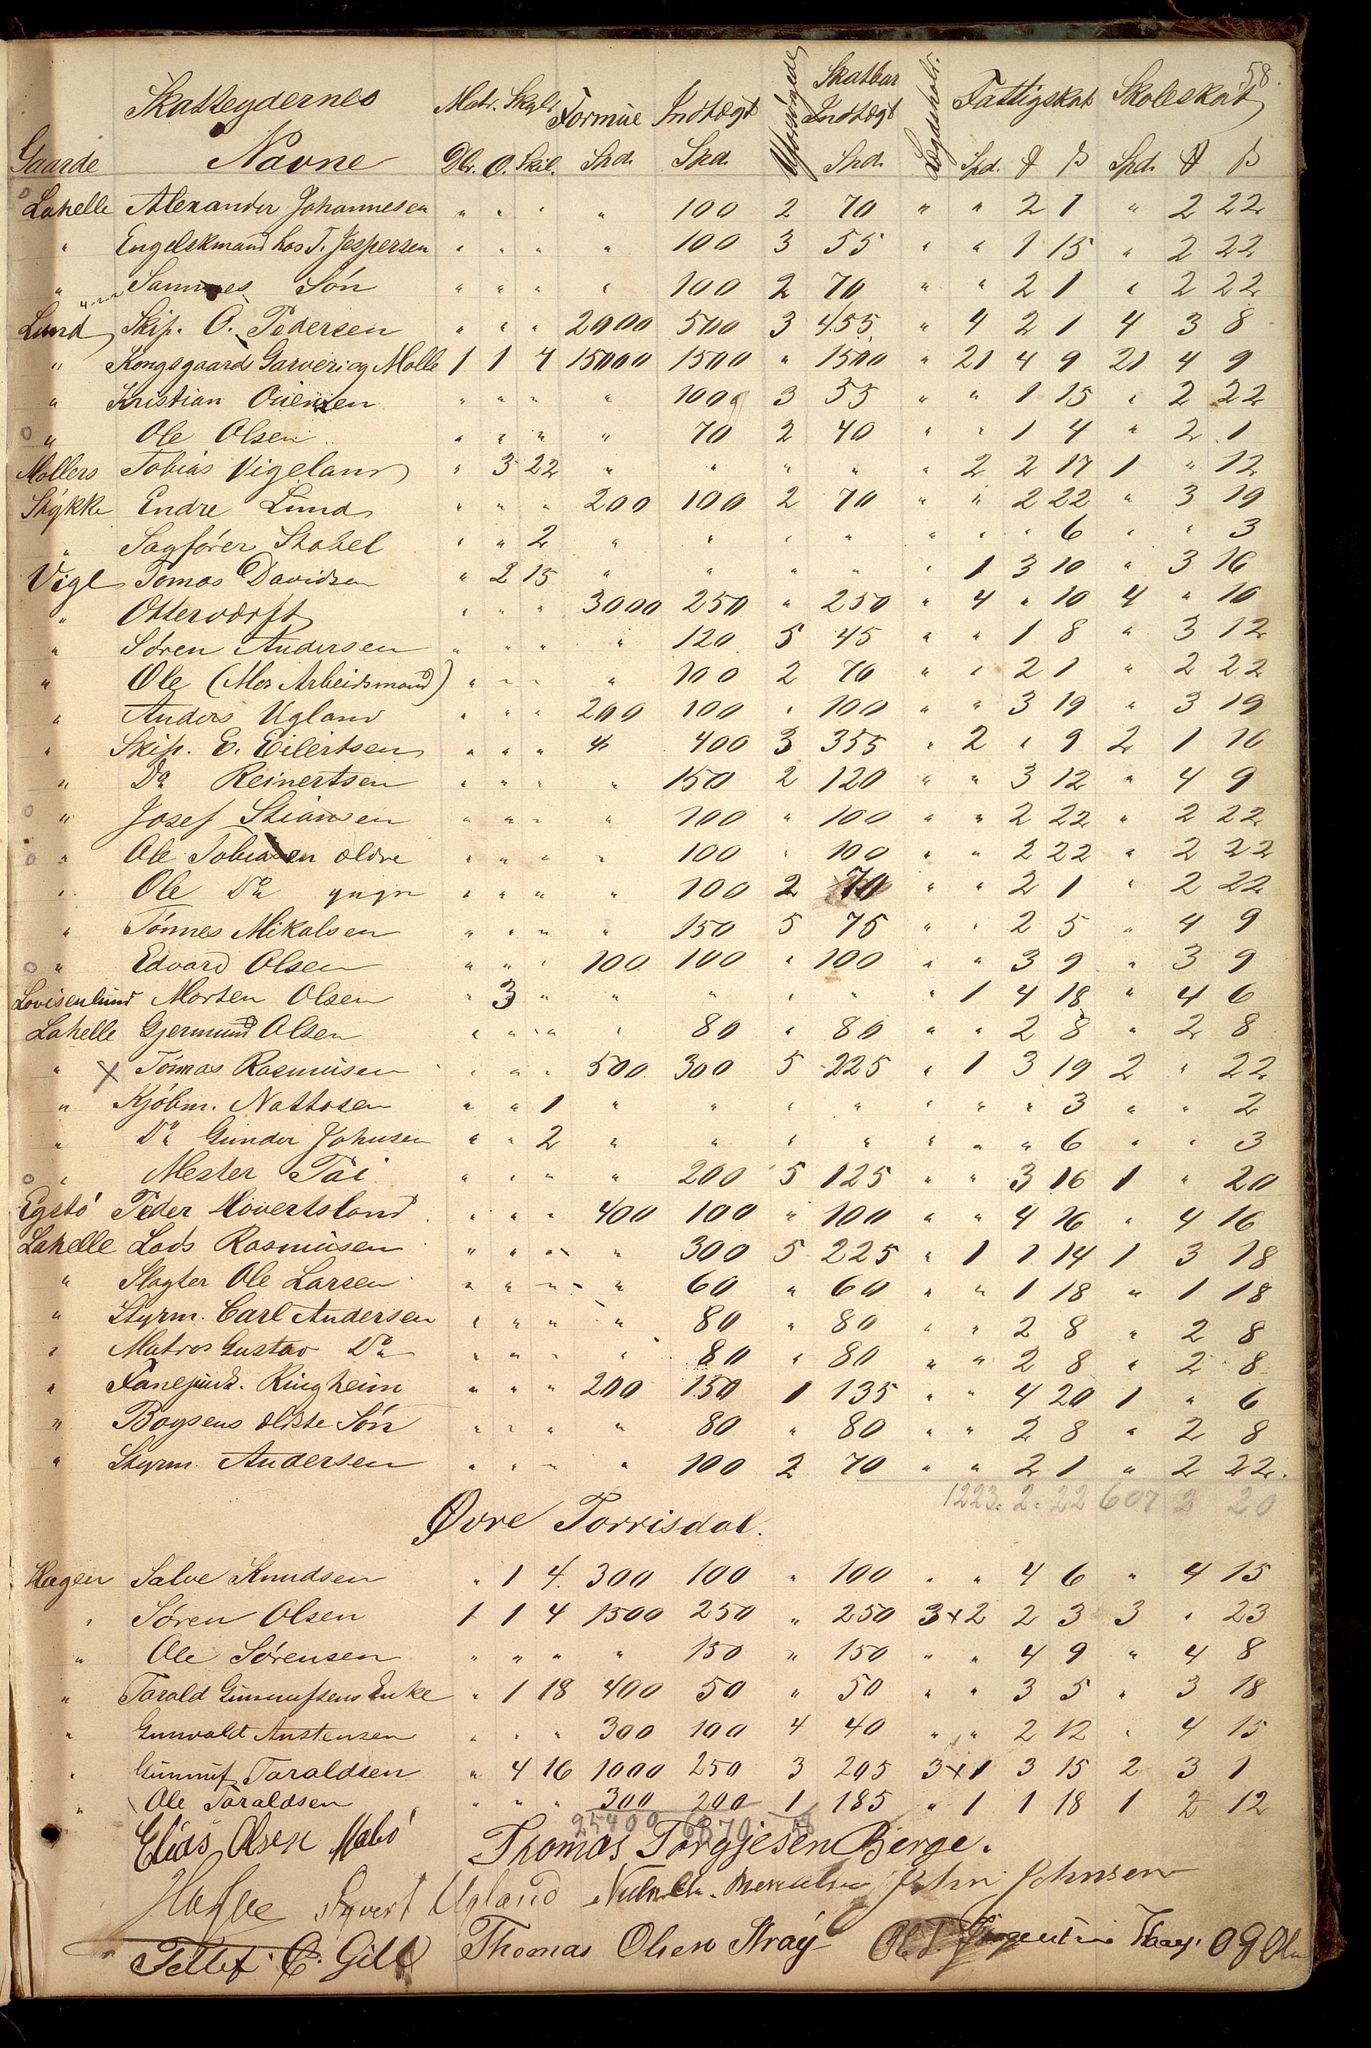 58.
Skatteydernes Matr. Skyld. Formue Indtægt Forsørgede Skatbar Indtægt Lægdeholt. Fattigskat Skoleskat
Gaarde Navne Dlr. O. Skil. Spd. Spd. Spd. Spd. ß Spd. ß
Lahelle Alexander Johannesen " " " " 100 2 70 " " 2 1 " 2 22
" Engelskmand hos T. Jespersen " " " " 100 3 55 " " 1 15 " 2 22
" Sammes Søn " " " " 100 2 70 " " 2 1 " 2 22
Lund Skip. O. Pedersen " " " 2000 500 3 455 " 4 2 1 4 3 8
" Kongsgaard Garveri og Mølle 1 1 7 15000 1500 " 1500 " 21 4 9 21 4 9
" Kristian " " " " 100 3 55 " " 1 15 " 2 22
" Ole Olsen " " " " 70 2 40 " " 1 4 " 2 1
Møllers Tobias Vigeland " 3 22 " " " " " 2 2 17 1 " 12
Stykke Endre Lund " " " 200 100 2 70 " " 2 22 " 3 19
" Sagfører Stabel " " 2 " " " " " " " 6 " " 3
Vige Tomas Davidsen " 2 15 " " " " " 1 3 10 " 3 16
" Otterværft " " " 3000 250 " 250 " 4 " 10 4 " 10
" Søren Andersen " " " " 120 5 45 " " 1 8 " 3 12
" Ole (Mos Arbeidsmand) " " " " 100 2 70 " " 2 1 " 2 22
" Anders Ugland " " " 200 100 " 100 " " 3 19 " 3 19
" Skip. E. Eilertsen " " " " 400 3 355 " 2 " 9 2 1 16
" Do Reinertsen " " " " 150 2 120 " " 3 12 " 4 9
" Josef Stiansen " " " " 100 " 100 " " 2 22 " 2 22
" Ole Tobiasen ældre " " " " 100 " 100 " " 2 22 " 2 22
" Ole Do yngre " " " " 100 2 70 " " 2 1 " 2 22
" Tønnes Mikalsen " " " " 150 5 75 " " 2 5 " 4 9
" Edvard Olsen " " " 100 100 " 100 " " 3 9 " 3 9
Lovisenlund Morten Olsen " 3 " " " " " " 1 4 18 " 4 6
Lahelle Gjermund Olsen " " " " 80 " 80 " " 2 8 " 2 8
" X Tomas Rasmusen " " " 500 300 5 225 " 1 3 19 2 " 22
" Kjøbm. " " 1 " " " " " " " 3 " " 2
" Do Gunder Johnsen " " 2 " " " " " " " 6 " " 3
" Mester Tai " " " " 200 5 125 " " 3 16 1 " 20
Egstø Peder Hovertsland " " " 400 100 " 100 " " 4 16 " 4 16
Lahelle Lods Rasmusen " " " " 300 5 225 " 1 1 14 1 3 18
" Slagter Ole Larsen " " " " 60 " 60 " " 1 18 " 1 18
" Styrm. Carl Andersen " " " " 80 " 80 " " 2 8 " 2 8
" Matros Gustav Do " " " " 80 " 80 " " 2 8 " 2 8
" Fanejunk. Ringheim " " " 200 150 1 135 " " 4 20 1 " 6
" Boysens ældste Søn " " " " 80 " 80 " " 2 8 " 2 8
" Styrm. Andersen " " " " 100 2 70 " " 2 1 " 2 22.
1223. 2. 22 607 2 20
Øvre Torrisdal.
Hagen Salve Knudsen " 1 4 300 100 " 100 " " 4 6 " 4 15
" Søren Olsen 1 1 4 1500 250 " 250 3 x 2 2 3 3 " 23
" Ole Sørensen " " " " 150 " 150 " " 4 9 " 4 8
" Tarald Gunnufsens Enke " 1 18 400 50 " 50 " " 3 5 " 3 18
" Gunvald Anstensen " " " 300 100 4 40 " " 2 12 " 4 15
" Gunnuf Taraldsen " 4 16 1000 250 3 205 3 x 1 3 15 2 3 1
" Ole Taraldsen " " " 300 200 1 185 " 1 1 18 1 2 12
25400 6870 58
Elias Olsen Mabø Thomas Torgjesen Berge.
Syvert Ugland John Johnsen
Tellef C. Gill Thomas Olsen Strøÿ O G Olsen